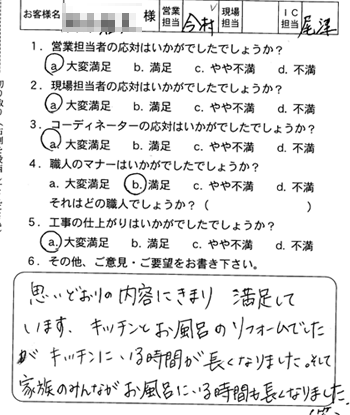 お客様名 様 営業担当 今村 現場担当 IC担当 尾澤
1．営業担当者の応対はいかがでしたでしょうか？
a. 大変満足 b. 満足 c. やや不満 d. 不満
2．現場担当者の応対はいかがでしたでしょうか？
a. 大変満足 b. 満足 c. やや不満 d. 不満
3．コーディネーターの応対はいかがでしたでしょうか？
a. 大変満足 b. 満足 c. やや不満 d. 不満
4．職人のマナーはいかがでしたでしょうか？
a. 大変満足 b. 満足 c. やや不満 d. 不満
それはどの職人でしょうか？（ ）
5．工事の仕上がりはいかがでしたでしょうか？
a. 大変満足 b. 満足 c. やや不満 d. 不満
6．その他、ご意見・ご要望をお書き下さい。
思いどおりの内容にきまり 満足して
います、キッチンとお風呂のリフォームでした
が キッチンにいる時間が長くなりました。そして
家族のみんながお風呂にいる時間も長くなりました